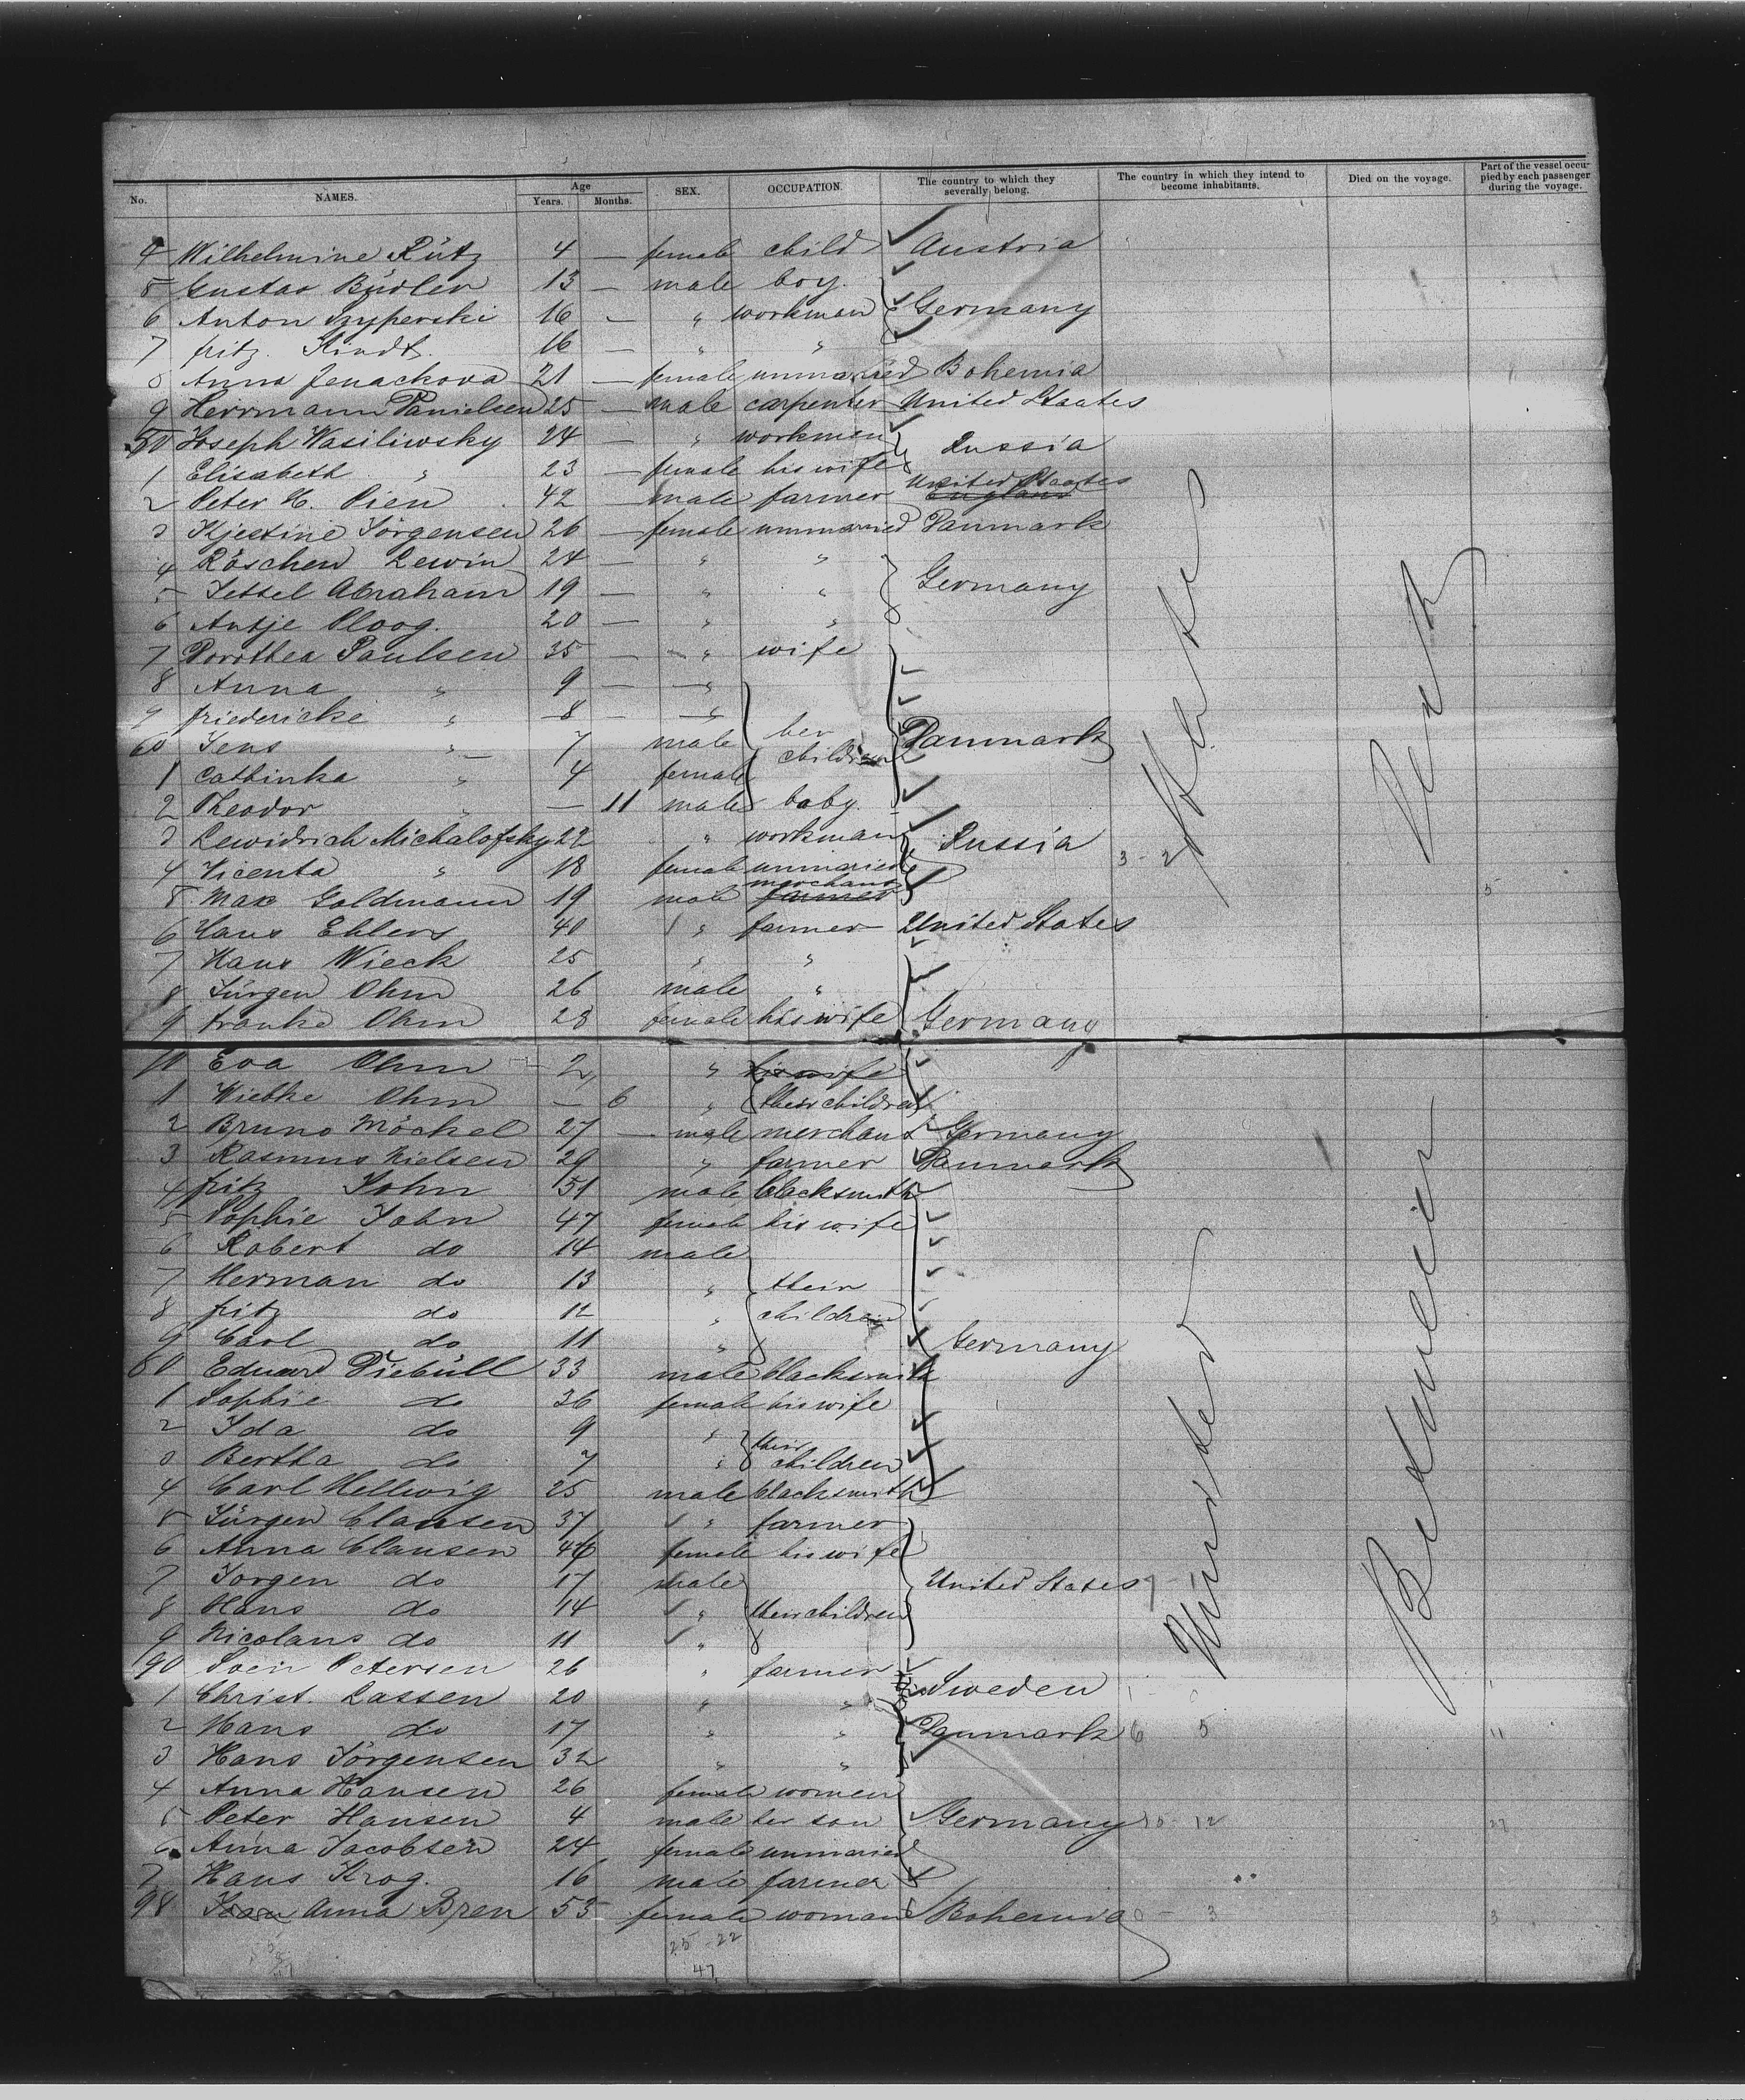 No. NAMES. Age Years. Months. SEX. OCCUPATION. The country to which they severally belong. The country in which they intend to become inhabitants. Died on the voyage. Part of the vessel occupied by each passenger during the voyage.
4 Wilhelmine Rütz 4 — female child Austria
5 Gustav Büdler 13 — male boy.
6 Anton Szyperski 16 — " workman Germany
7 fritz. Kindt. 16 — " "
8 Anna Jenackova 21 — female unmarried Bohemia
9 Herrmann Danielsen 25 — male carpenter United Staates
50 Joseph Wasiliwsky 24 — " workmen Russia
1 Elisabeth " 23 — female his wife
2 Peter H. Pien 42 — male farmer United Staates England
3 Kjestine Jörgensen 26 — female unmarried Danmark
4 Röschen Lewin 24 — " "
5 Jettel Abraham 19 — " " Germany
6 Antje Ploog. 20 — " "
7 Dorothea Paulsen 35 — " wife
8 Anna " 9 — "
9 friedericke " 8 — "
60 Jens " 7 male her children Danmark
1 Cathinka " 4 female
2 Theodor " — 11 male baby.
3 Lewidrich Michalofsky 22 " workman Russia 3 - 2
4 Vicenta " 18 female unmaried
5 Max Goldmann 19 male merchant farmer 5
6 Hans Ehlers 40 " farmer United States
7 Hans Wieck 25 " "
8 Jürgen Ohm 26 male "
9 frauke Ohm 28 female his wife Germany
70 Eva Ohm 2 " his wife
1 Wiebke Ohm — 6 " their children
2 Bruno Möckel 27 — male merchant Germany
3 Rasmus Nielsen 29 " farmer Danmark
4 fritz John 51 male blacksmith
5 Sophie John 47 female his wife
6 Robert do 14 male
7 Herman do 13 " their
8 fritz do 12 " children
9 Carl do 11 " Germany
80 Eduard Diebüll 33 male blacksmith
1 Sophie do 36 female his wife
2 Ida do 9 " their
3 Bertha do 7 " children
4 Carl Hellwig 25 male blacksmith
5 Jürgen Clausen 37 " farmer
6 Anna Clausen 46 female his wife
7 Jorgen do 17 male United States
8 Hans do 14 " their children
9 Nicolaus do 11 "
90 Soen Petersen 26 " farmer
1 Christ. Lassen 20 " " Sweden
2 Hans do 17 " " Danmark 6 5 11
3 Hans Jörgensen 32 " "
4 Anna Hansen 26 female women
5 Peter Hansen 4 male her son Germany 12 27
6 Anna Jacobsen 24 female unmaried
7 Hans Krog. 16 male farmer
98 Anna Bren 55 female woman Bohemia 0 - 3 3
25 - 22
47
Staaten
Deck
Zwischendeck